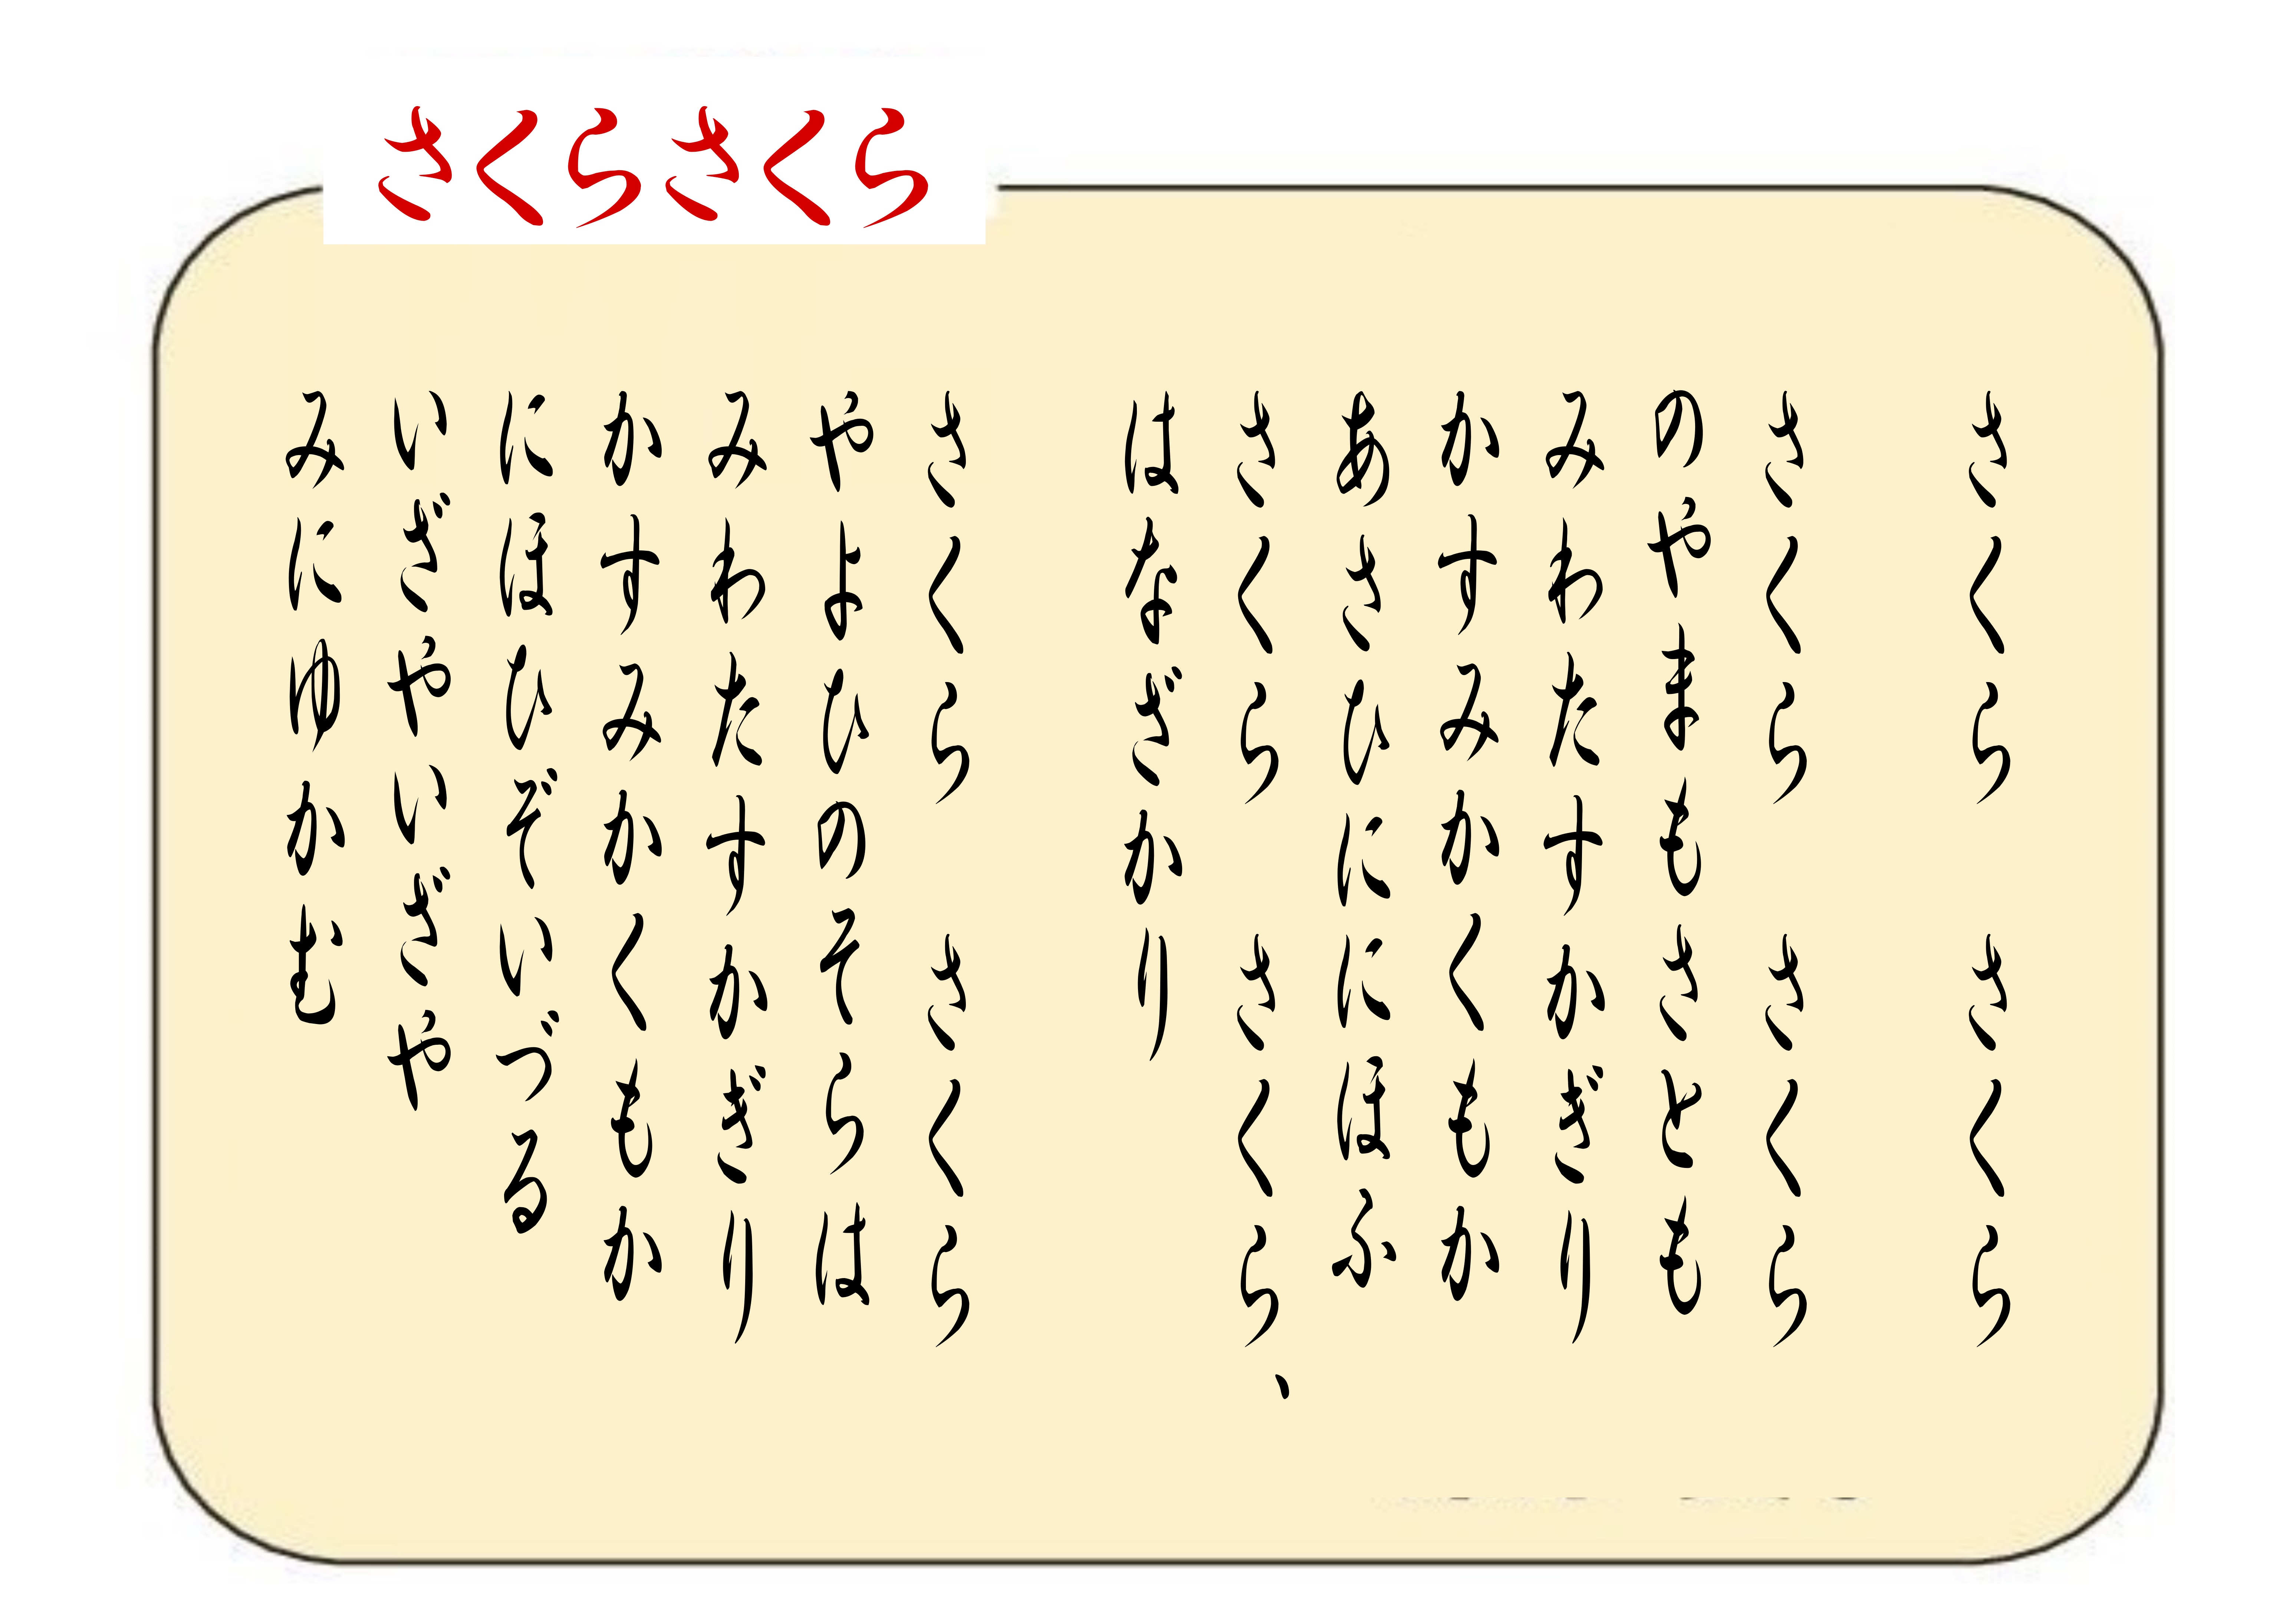 さくらさくら
さくら　さくら
さくら　さくら
のやまもさとも
みわたすかぎり
かすみかくもか
あさひににほふ
さくら　さくら、
はなざかり
さくら　さくら
やよひのそらは
みわたすかぎり
かすみかくもか
にほひぞいづる
いざやいざや
みにゆかむ